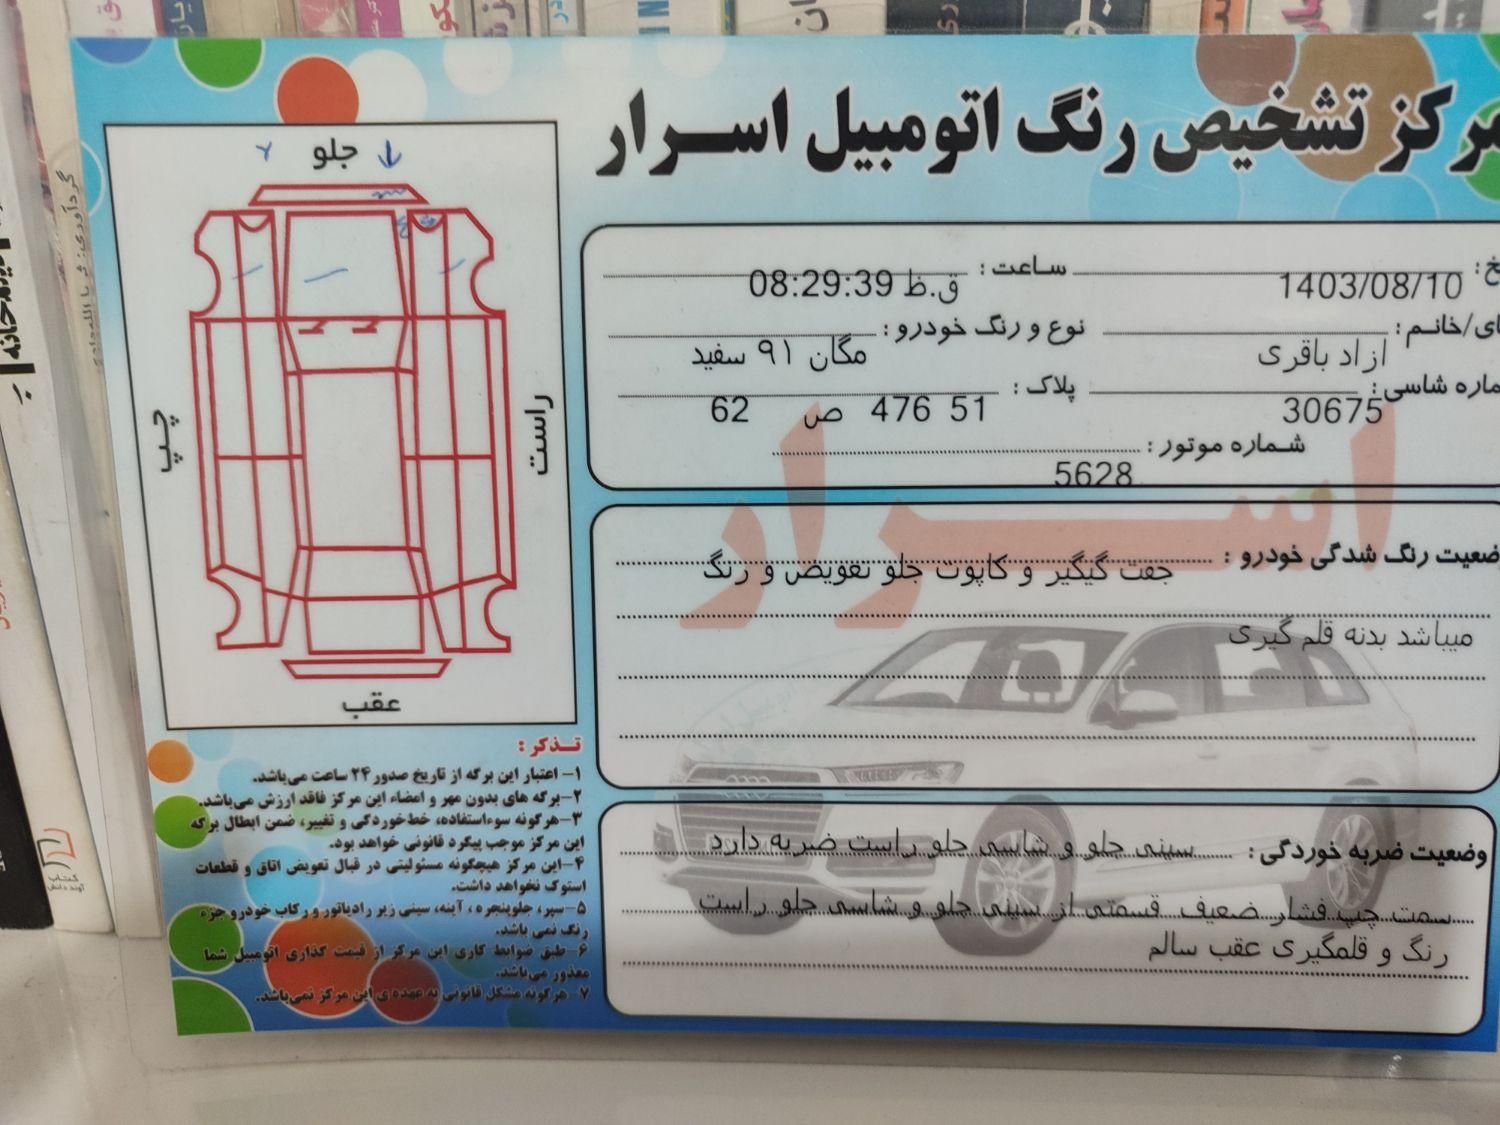 مرکز تشخیص رنگ اتومبیل اسرار
ساعت : 08:29:39 ق.ظ
1403/08/10
ای/خانم : ازاد باقری
نوع و رنگ خودرو : مگان ۹۱ سفید
ماره شاسی : 30675
پلاک : 51 476 ص 62
شماره موتور : 5628
اسرار
ضعیت رنگ شدگی خودرو : جفت گلگیر و کاپوت جلو تعویض و رنگ
میباشد بدنه قلم گیری
وضعیت ضربه خوردگی : سینی جلو و شاسی جلو راست ضربه دارد
سمت چپ فشار ضعیف قسمتی از سینی جلو و شاسی جلو راست
رنگ و قلمگیری عقب سالم
جلو
چپ
راست
عقب
تـذکر :
۱- اعتبار این برگه از تاریخ صدور ۲۴ ساعت می‌باشد.
۲-برگه های بدون مهر و امضاء این مرکز فاقد ارزش می‌باشد.
۳-هرگونه سوءاستفاده، خط‌خوردگی و تغییر، ضمن ابطال برگه
این مرکز موجب پیگرد قانونی خواهد بود.
۴-این مرکز هیچگونه مسئولیتی در قبال تعویض اتاق و قطعات
استوک نخواهد داشت.
۵-سپر، جلوپنجره، آینه، سینی زیر رادیاتور و رکاب خودرو جزء
رنگ نمی باشد.
۶-طبق ضوابط کاری این مرکز از قیمت گذاری اتومبیل شما
معذور می‌باشد.
۷-هرگونه مشکل قانونی به عهده ی این مرکز نمی‌باشد.